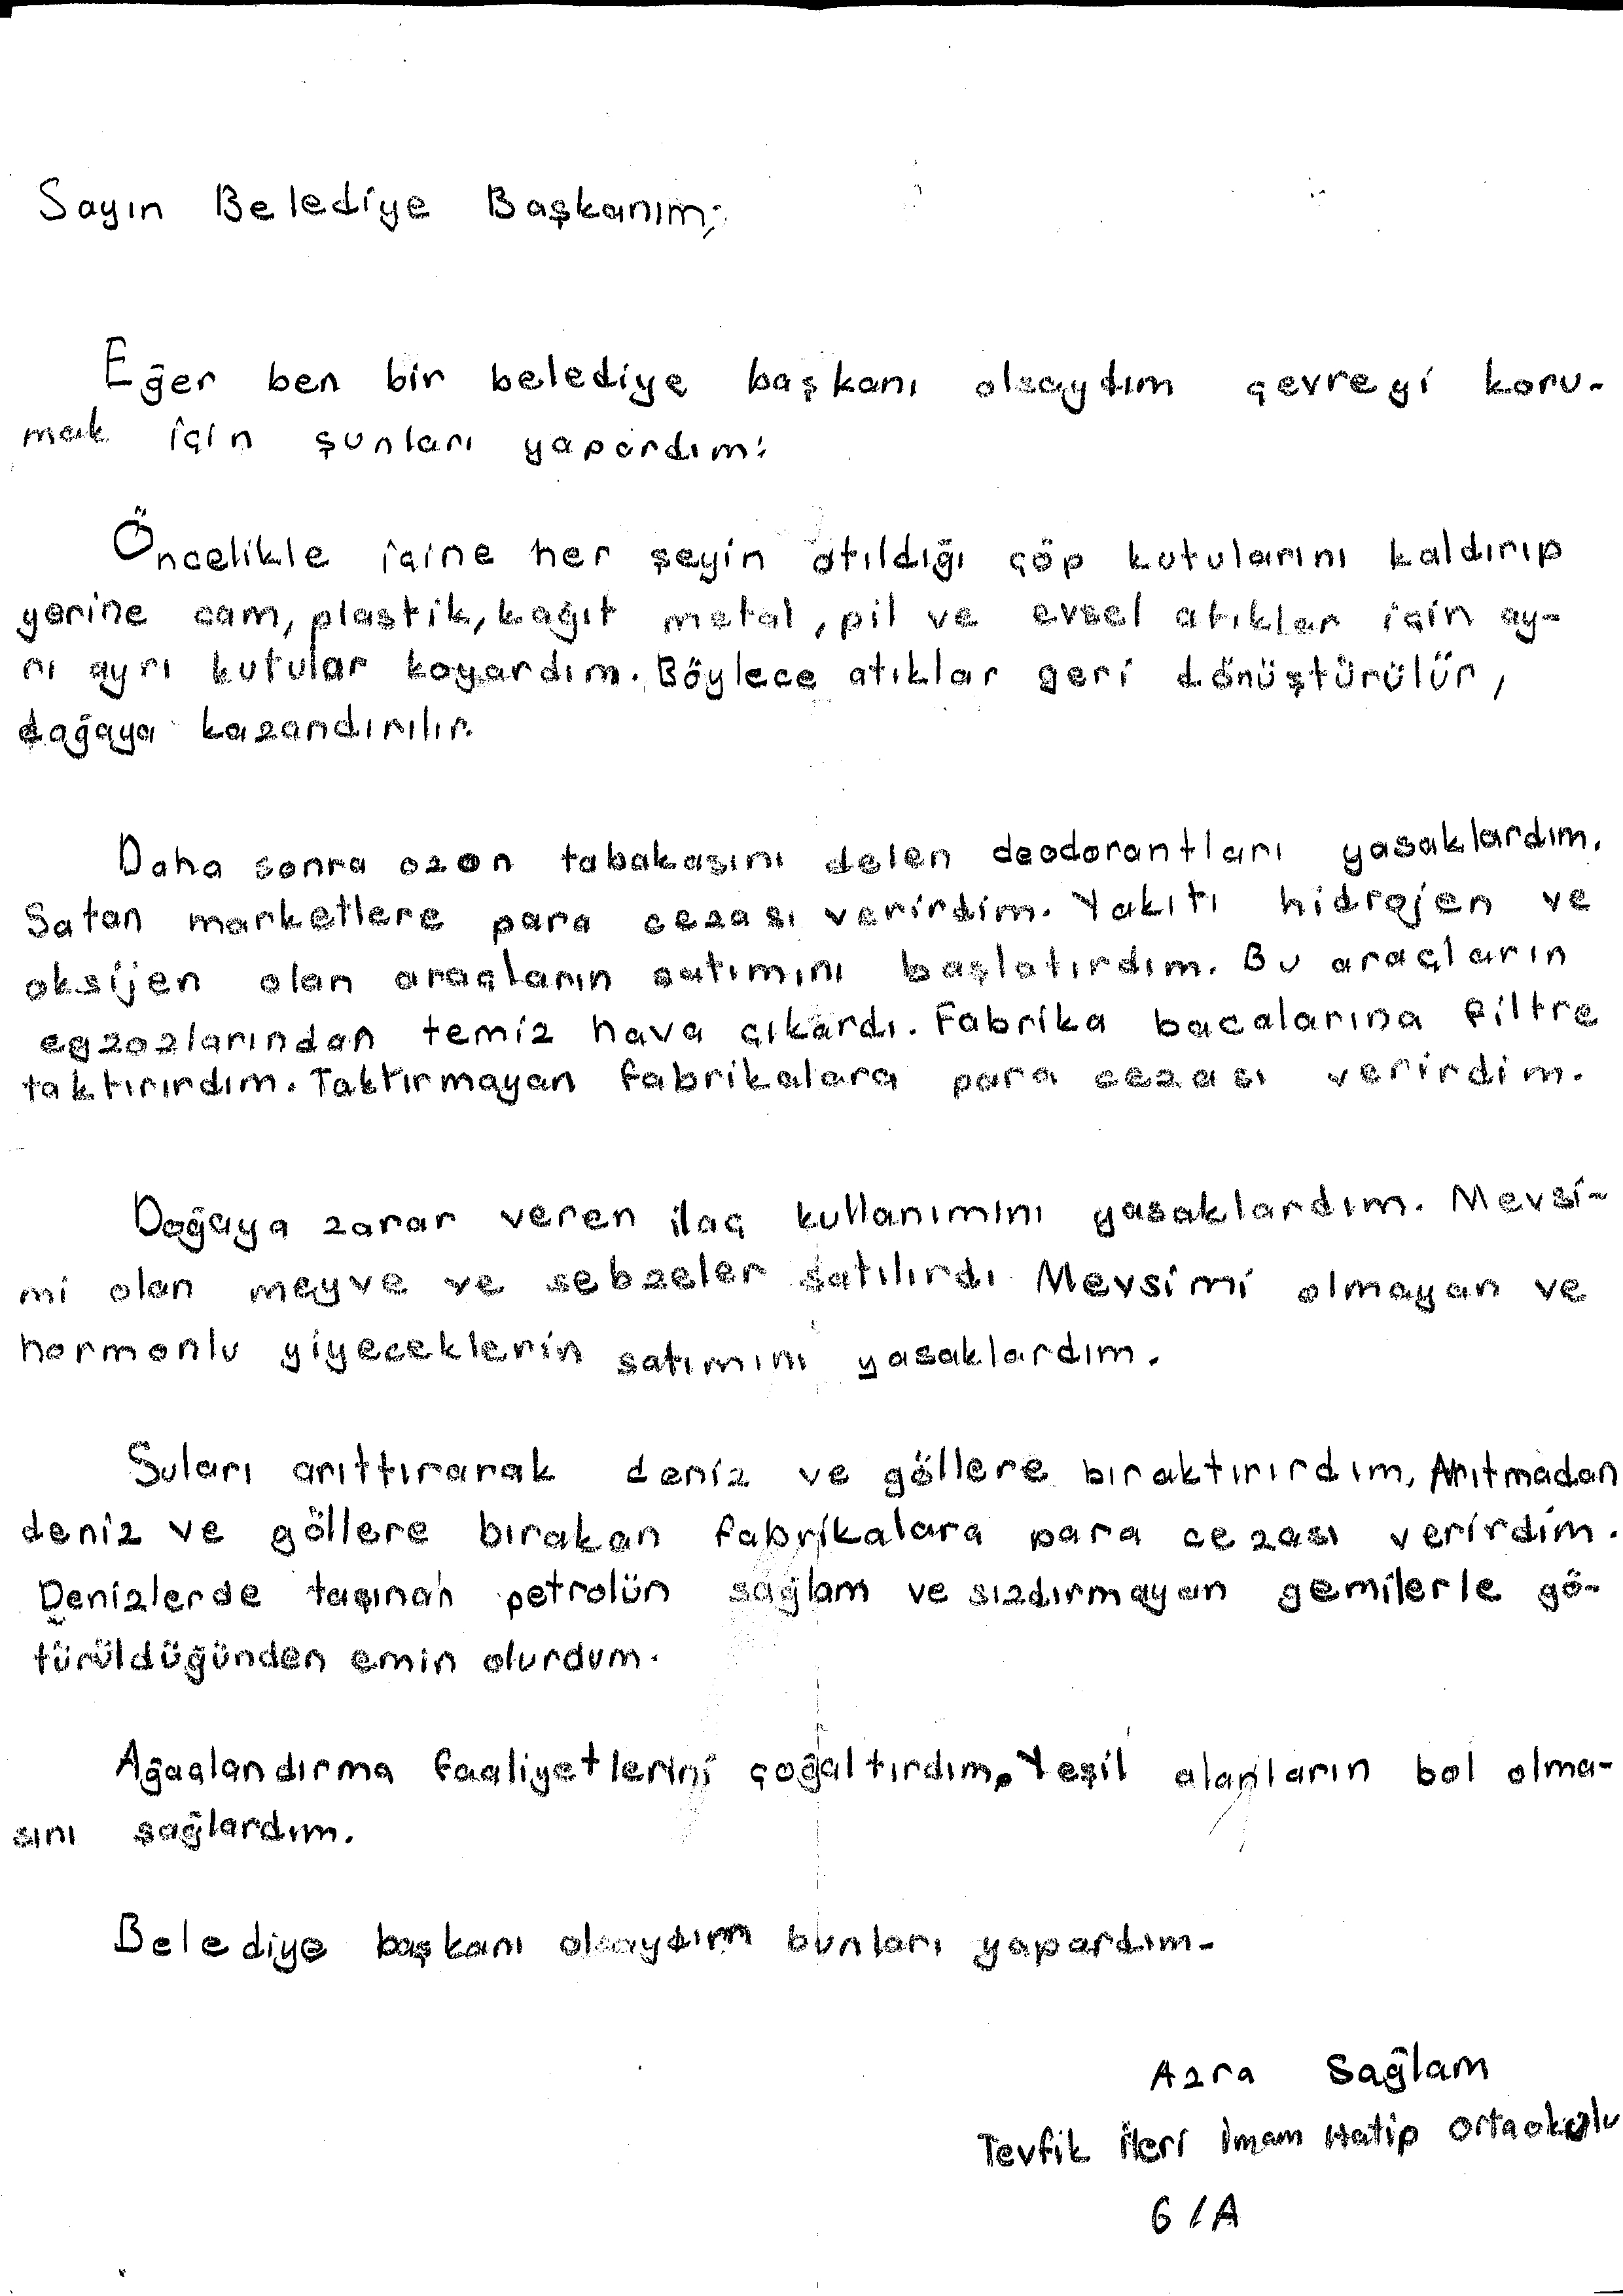 Sayın Belediye Başkanım;
Eğer ben bir belediye başkanı olsaydım çevreyi koru-
mak için şunları yapardım:
Öncelikle içine her şeyin atıldığı çöp kutularını kaldırıp
yerine cam, plastik, kağıt metal, pil ve evsel atıklar için ay-
rı ayrı kutular koyardım. Böylece atıklar geri dönüştürülür,
doğaya kazandırılır.
Daha sonra ozon tabakasını delen deodorantları yasaklardım.
Satan marketlere para cezası verirdim. Yakıtı hidrojen ve
oksijen olan araçların satımını başlatırdım. Bu araçların
egzozlarından temiz hava çıkardı. Fabrika bacalarına filtre
taktırırdım. Taktırmayan fabrikalara para cezası verirdim.
Doğaya zarar veren ilaç kullanımını yasaklardım. Mevsi-
mi olan meyve ve sebzeler satılırdı Mevsimi olmayan ve
hormonlu yiyeceklerin satımını yasaklardım.
Suları arıttırarak deniz ve göllere bıraktırırdım. Arıtmadan
deniz ve göllere bırakan fabrikalara para cezası verirdim.
Denizlerde taşınan petrolün sağlam ve sızdırmayan gemilerle gö-
türüldüğünden emin olurdum.
Ağaçlandırma faaliyetlerini çoğaltırdım. Yeşil alanların bol olma-
sını sağlardım.
Belediye başkanı olsaydım bunları yapardım.
Azra Sağlam
Tevfik İleri İmam Hatip Ortaokulu
6/A